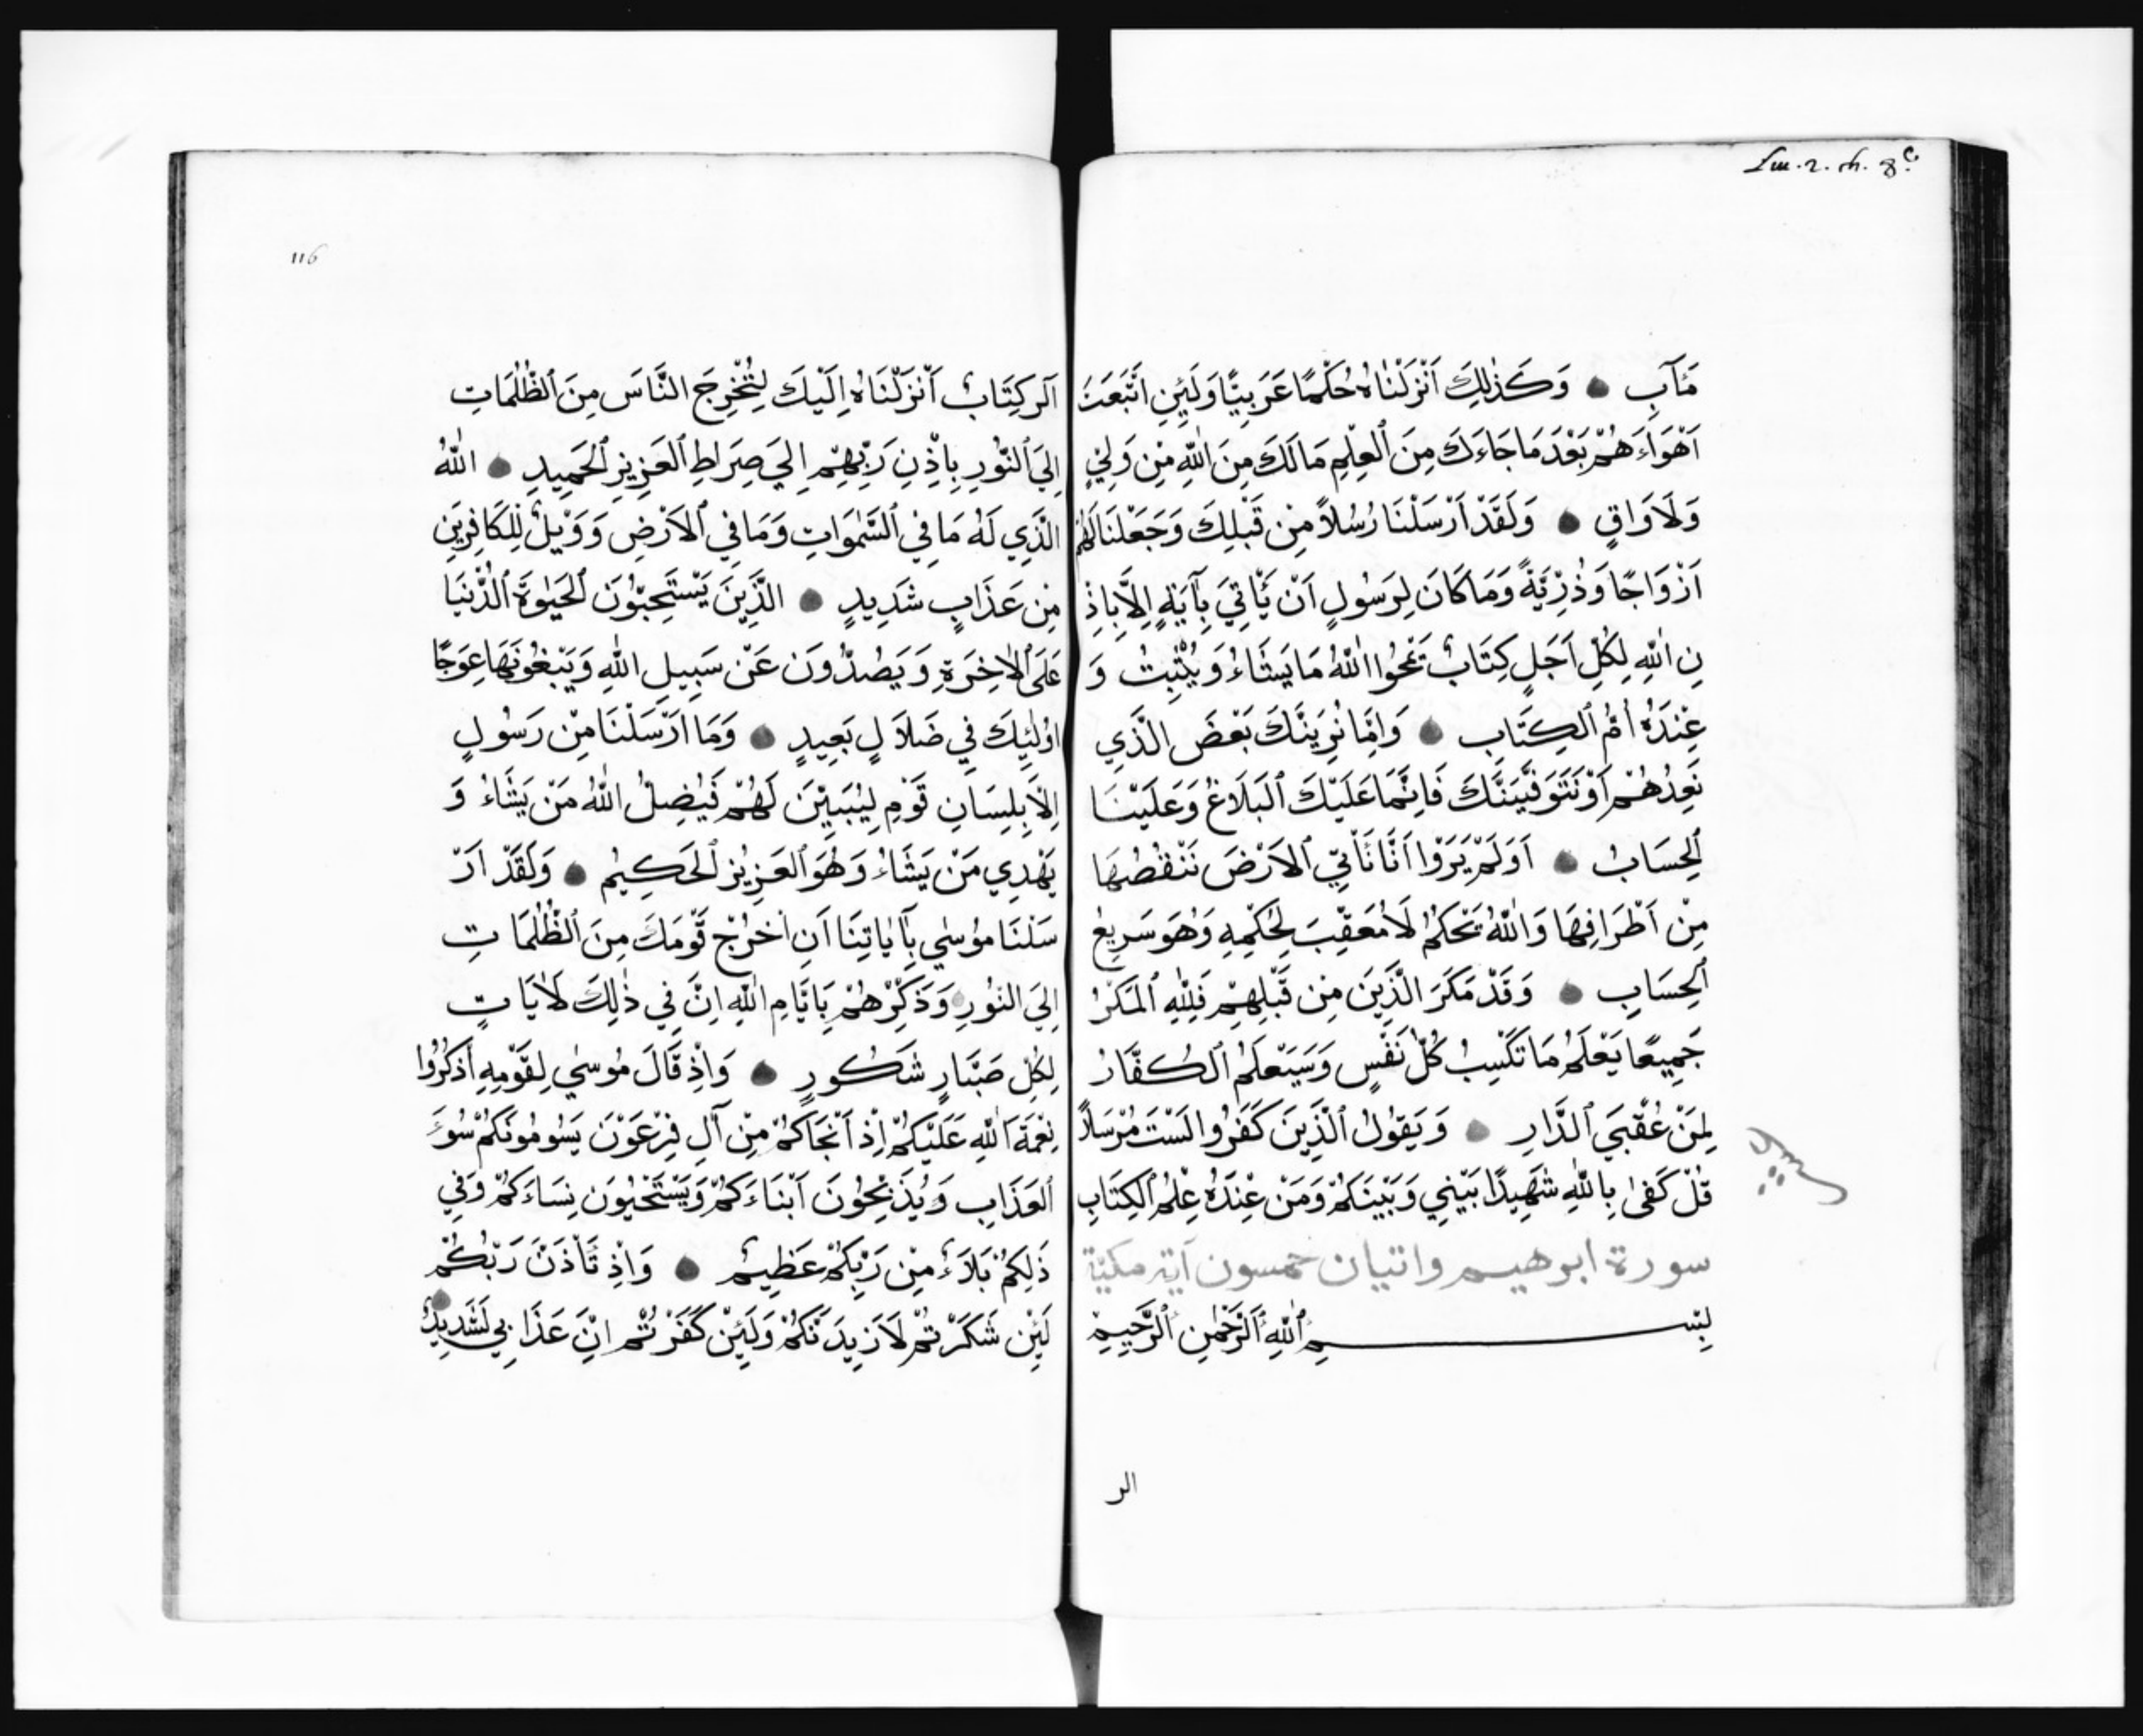 مَـَٔابِ وَكَذٰلِكَ اَنْزَلْنَاهُ حُكْمًا عَرَبِيًّا وَلَئِنِ اتَّبَعْتَ
اَهْوَاءَهُمْ بَعْدَ مَا جَاءَكَ مِنَ الْعِلْمِ مَا لَكَ مِنَ اللّٰهِ مِنْ وَلِيٍّ
وَلَا وَاقٍ وَلَقَدْ اَرْسَلْنَا رُسُلاً مِنْ قَبْلِكَ وَجَعَلْنَا لَهُمْ
اَزْوَاجًا وَذُرِّيَّةً وَمَا كَانَ لِرَسُولٍ اَنْ يَّأتِيَ بِآيَةٍ اِلاَّ بِاِذْ
نِ اللّٰهِ لِكُلِّ اَجَلٍ كِتَابٌ يَمْحُوا اللّٰهُ مَا يَشَاءُ وَيُثْبِتُ وَ
عِنْدَهُ اُمُّ الْكِتَابِ وَاِمَّا نُرِيَنَّكَ بَعْضَ الَّذِي
نَعِدُهُمْ اَوْ نَتَوَفَّيَنَّكَ فَاِنَّمَا عَلَيْكَ الْبَلَاغُ وَعَلَيْنَا
الْحِسَابُ اَوَلَمْ يَرَوْا اَنَّا نَأتِي الْاَرْضَ نَنْقُصُهَا
مِنْ اَطْرَافِهَا وَاللّٰهُ يَحْكُمُ لَا مُعَقِّبَ لِحُكْمِهِ وَهُوَ سَرِيعُ
الْحِسَابِ وَقَدْ مَكَرَ الَّذِينَ مِنْ قَبْلِهِمْ فَلِلّٰهِ الْمَكْرُ
جَمِيعًا يَعْلَمُ مَا تَكْسِبُ كُلُّ نَفْسٍ وَسَيَعْلَمُ الْكُفَّارُ
لِمَنْ عُقْبَي الدَّارِ وَيَقُولُ الَّذِينَ كَفَرُوا لَسْتَ مُرْسَلاً
قُلْ كَفٰى بِاللّٰهِ شَهِيدًا بَيْنِي وَبَيْنَكُمْ وَمَنْ عِنْدَهُ عِلْمُ الْكِتَابِ
سورة ابرهيم واثيان خمسون آية مكيّة
بِسْمِ اللّٰهِ الرَّحْمٰنِ الرَّحِيمِ
الر
116
آلر كِتَابٌ اَنْزَلْنَاهُ اِلَيْكَ لِتُخْرِجَ النَّاسَ مِنَ الظُّلُمَاتِ
اِلَي النُّورِ بِاِذْنِ رَبِّهِمْ اِلَي صِرَاطِ الْعَزِيزِ الْحَمِيدِ اللّٰهُ
الَّذِي لَهُ مَا فِي السَّمٰوَاتِ وَمَا فِي الْاَرْضِ وَوَيْلٌ لِلْكَافِرِينَ
مِنْ عَذَابٍ شَدِيدٍ الَّذِينَ يَسْتَحِبُّونَ الْحَيٰوةَ الدُّنْيَا
عَلَى الْاٰخِرَةِ وَيَصُدُّونَ عَنْ سَبِيلِ اللّٰهِ وَيَبْغُونَهَا عِوَجًا
اُولٰئِكَ فِي ضَلَالٍ بَعِيدٍ وَمَا اَرْسَلْنَا مِنْ رَسُولٍ
اِلاَّ بِلِسَانِ قَوْمِ لِيُبَيِّنَ لَهُمْ فَيُضِلُّ اللّٰهُ مَنْ يَشَاءُ وَ
يَهْدِي مَنْ يَشَاءُ وَهُوَ الْعَزِيزُ الْحَكِيمُ وَلَقَدْ اَرْ
سَلْنَا مُوسٰي بِآيَاتِنَا اَنِ اَخْرِجْ قَوْمَكَ مِنَ الظُّلُمَاتِ
اِلَي النُّورِ وَذَكِّرْهُمْ بِاَيَّامِ اللّٰهِ اِنَّ فِي ذٰلِكَ لَاٰيَاتٍ
لِكُلِّ صَبَّارٍ شَكُورٍ وَاِذْ قَالَ مُوسٰي لِقَوْمِهِ اذْكُرُوا
نِعْمَةَ اللّٰهِ عَلَيْكُمْ اِذْ اَنْجَاكُمْ مِنْ آلِ فِرْعَوْنَ يَسُومُونَكُمْ سُوءَ
الْعَذَابِ وَيُذَبِّحُونَ اَبْنَاءَكُمْ وَيَسْتَحْيُونَ نِسَاءَكُمْ وَفِي
ذَلِكُمْ بَلَاءٌ مِنْ رَبِّكُمْ عَظِيمٌ وَاِذْ تَأَذَّنَ رَبُّكُمْ
لَئِنْ شَكَرْتُمْ لَاَزِيدَنَّكُمْ وَلَئِنْ كَفَرْتُمْ اِنَّ عَذَابِي لَشَدِيدٌ